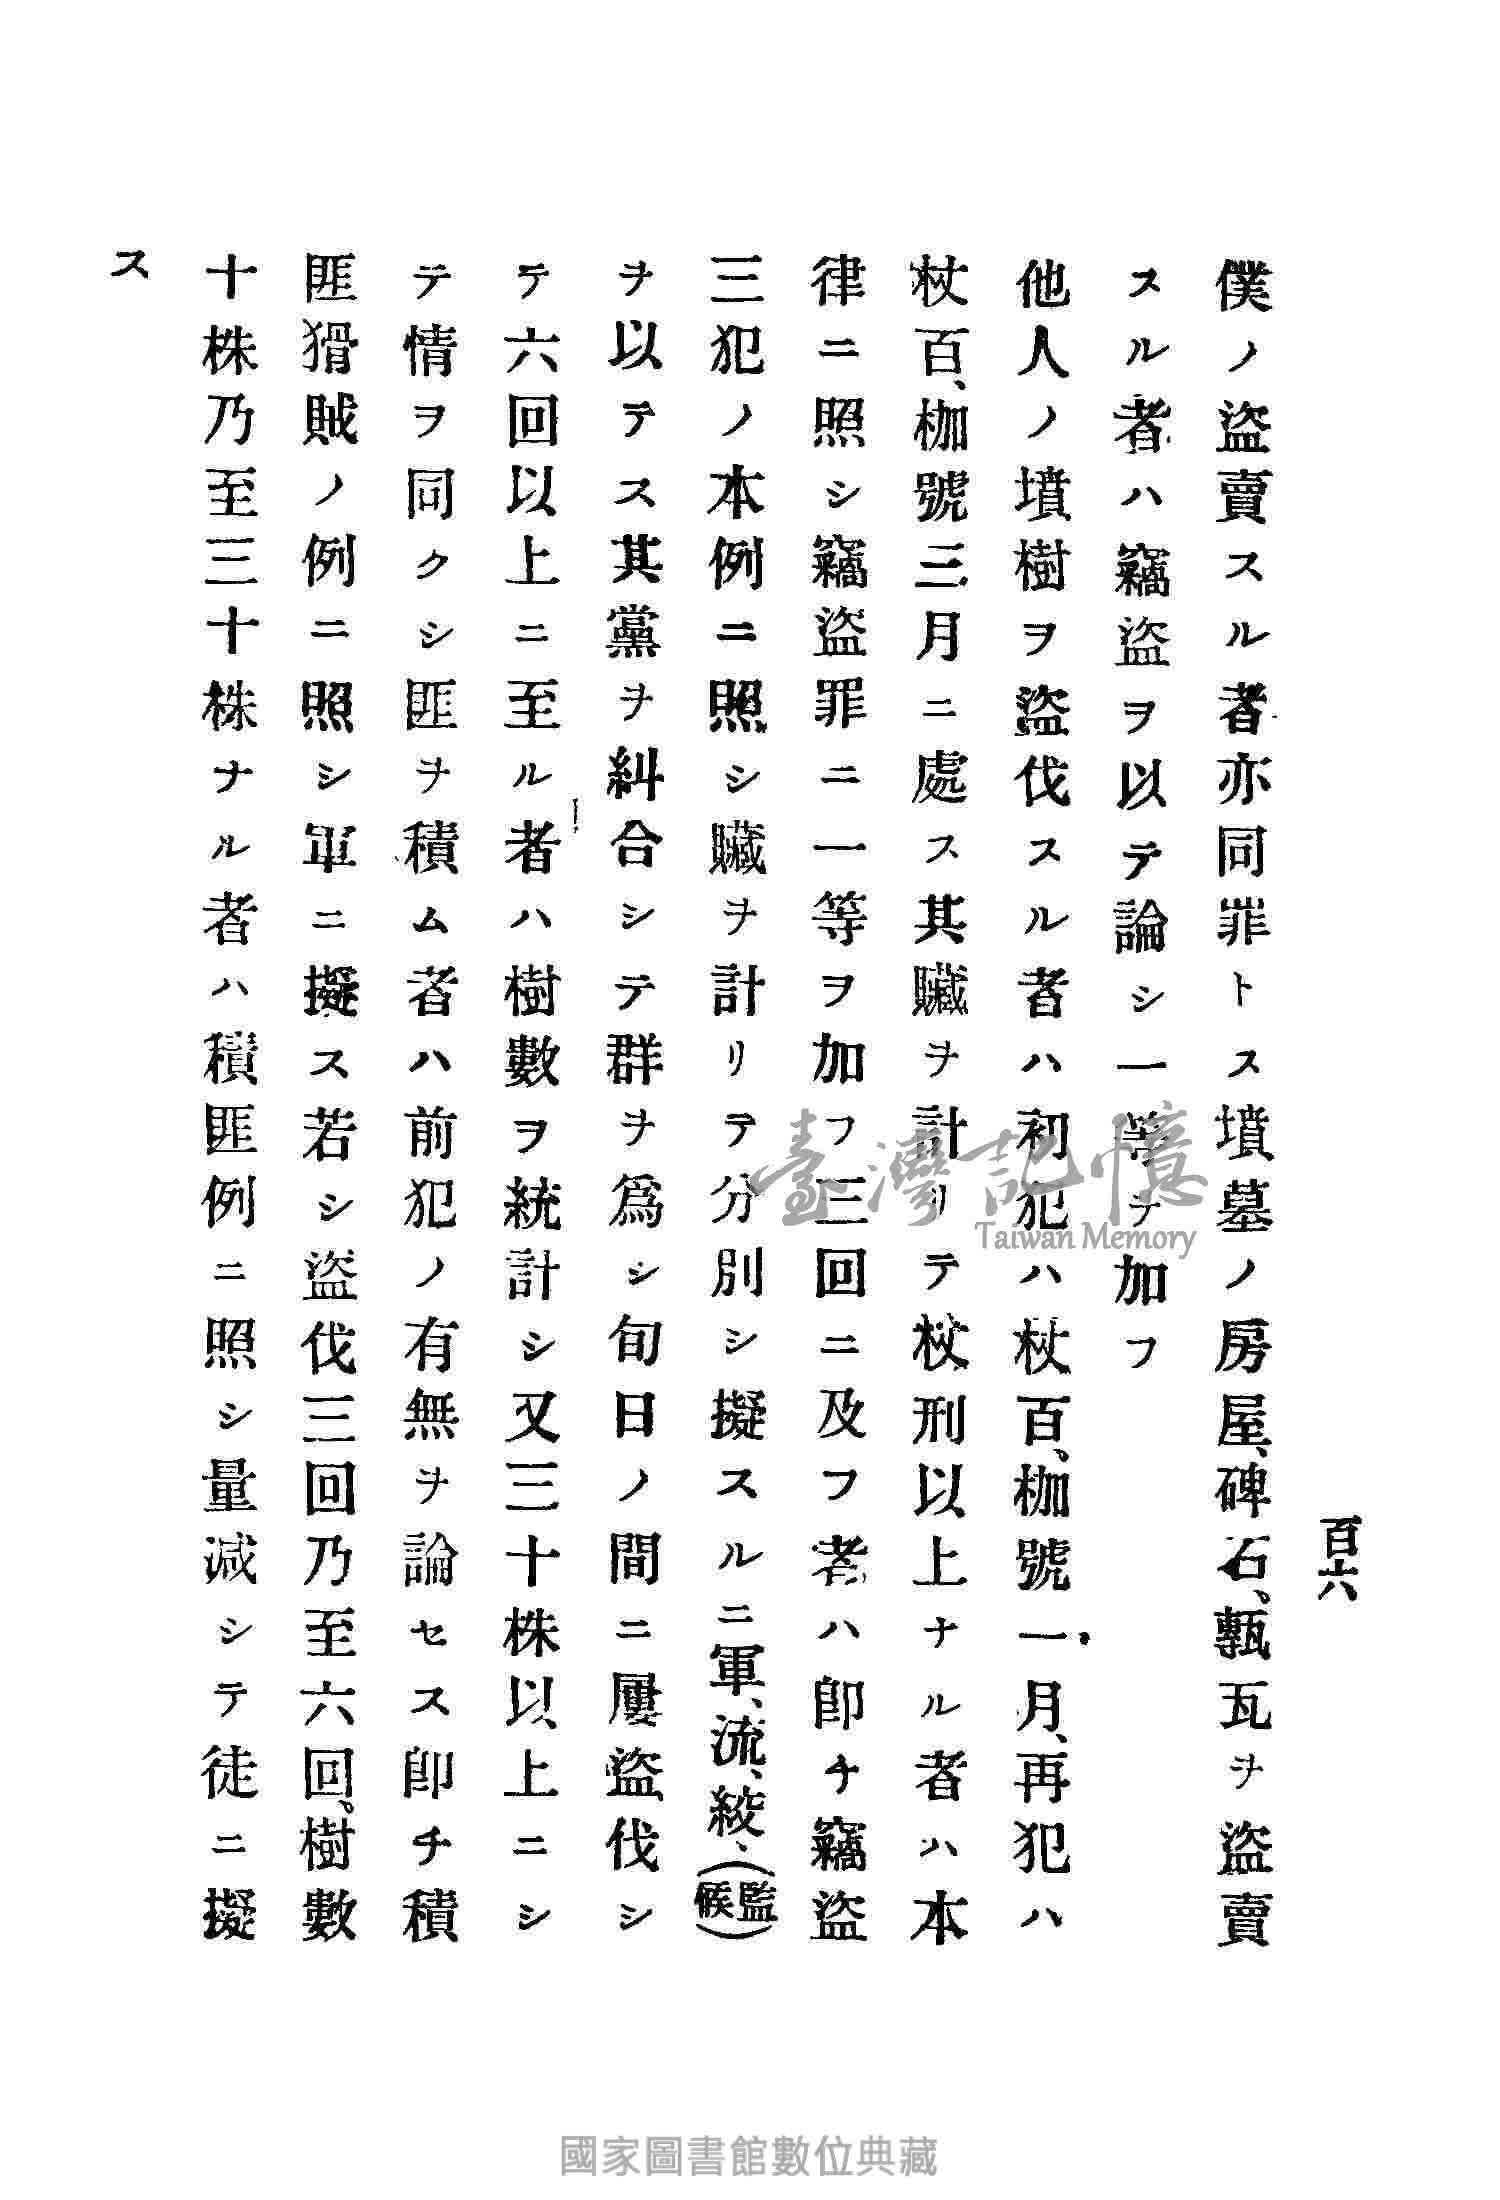 百六
僕ノ盜賣スル者亦同罪トス墳墓ノ房屋、碑石、甎瓦ヲ盜賣
スル者ハ竊盜ヲ以テ論シ一等ヲ加フ
他人ノ墳樹ヲ盜伐スル者ハ初犯ハ杖百、枷號一月、再犯ハ
杖百、枷號三月ニ處ス其贓ヲ計リテ杖刑以上ナル者ハ本
律ニ照シ竊盜罪ニ一等ヲ加フ三回ニ及フ者ハ卽チ竊盜
三犯ノ本例ニ照シ贓ヲ計リテ分別シ擬スルニ軍、流、絞、(監候)
ヲ以テス其黨ヲ糾合シテ群ヲ爲シ旬日ノ間ニ屢盜伐シ
テ六回以上ニ至ル者ハ樹數ヲ統計シ又三十株以上ニシ
テ情ヲ同クシ匪ヲ積ム者ハ前犯ノ有無ヲ論セス卽チ積
匪猾賊ノ例ニ照シ軍ニ擬ス若シ盜伐三回乃至六回、樹數
十株乃至三十株ナル者ハ積匪例ニ照シ量減シテ徒ニ擬
ス
臺灣記憶
Taiwan Memory
國家圖書館數位典藏